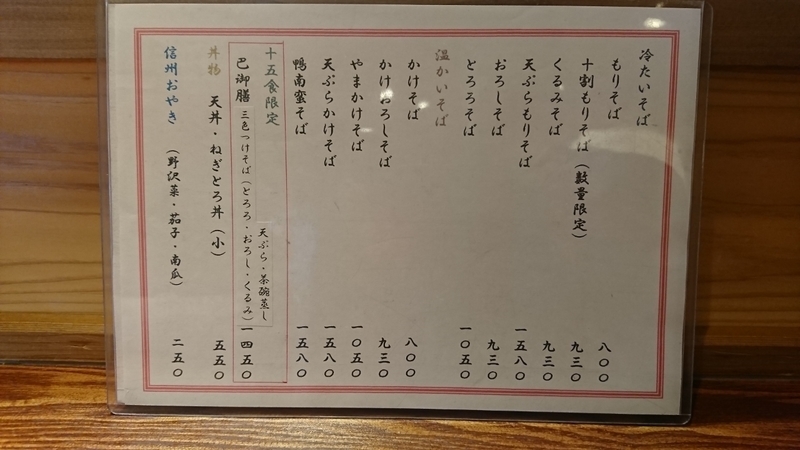 冷たいそば
もりそば 八〇〇
十割もりそば（数量限定） 九三〇
くるみそば 九三〇
天ぷらもりそば 一五八〇
おろしそば 九三〇
とろろそば 一〇五〇
温かいそば
かけそば 八〇〇
かけおろしそば 九三〇
やまかけそば 一〇五〇
天ぷらかけそば 一五八〇
鴨南蛮そば 一五八〇
十五食限定
天ぷら・茶碗蒸し
巴御膳 三色つけそば（とろろ・おろし・くるみ） 一四五〇
丼物 天丼・ねぎとろ丼（小） 五五〇
信州おやき （野沢菜・茄子・南瓜） 二五〇